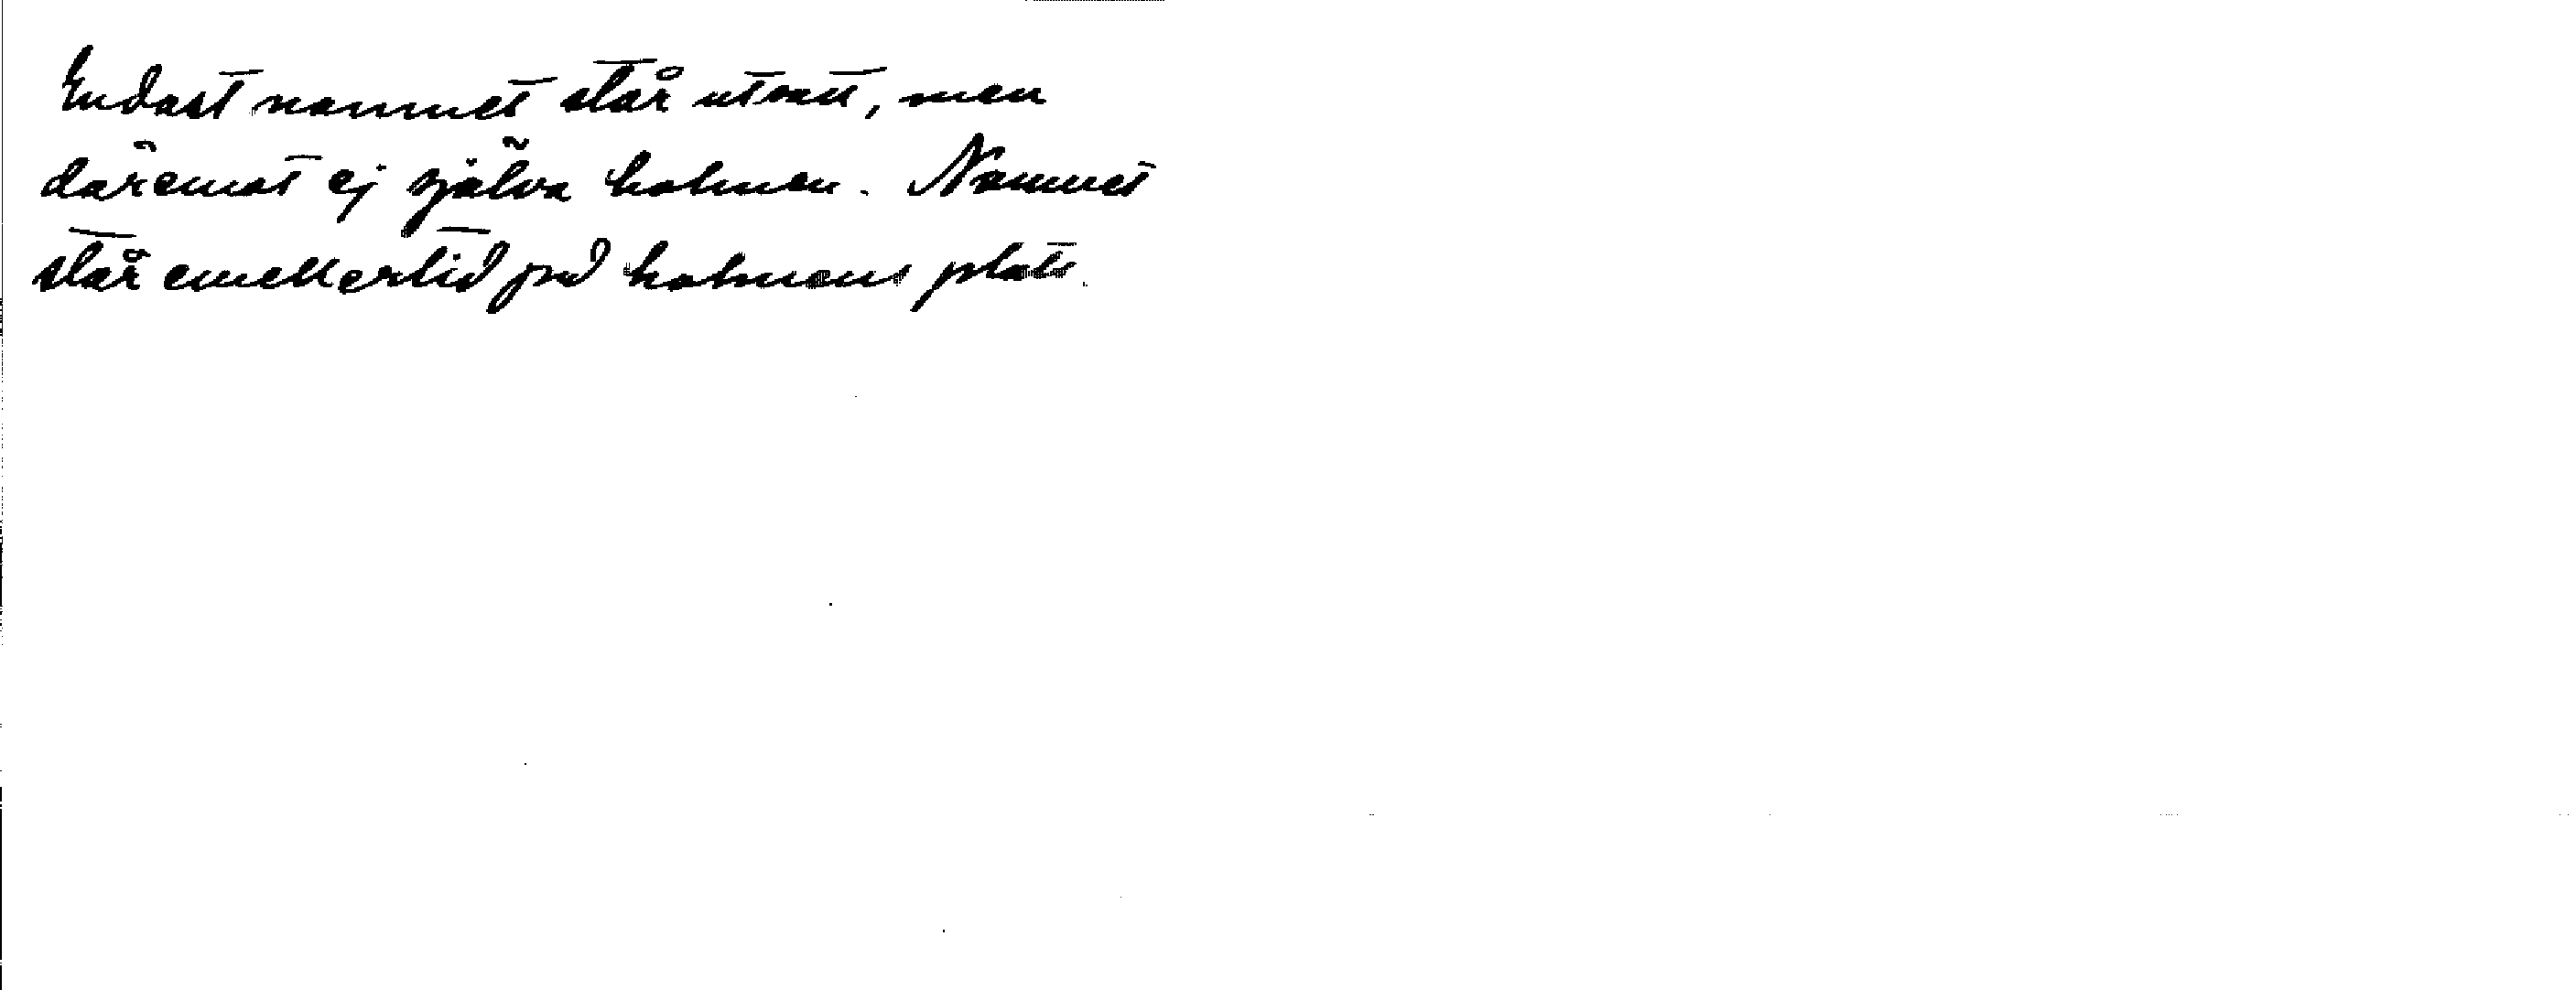 Endast namnet står utsatt, men
däremot ej själva holmen. Namnet
står emellertid på holmens plats.